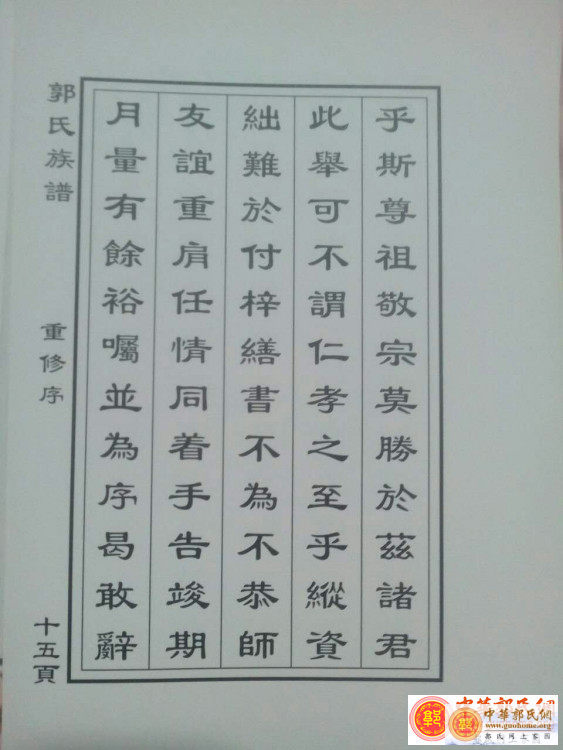 乎斯尊祖敬宗莫勝於茲諸君
此舉可不謂仁孝之至乎縱資
絀難於付梓繕書不為不恭師
友誼重肩任情同着手告竣期
月量有餘裕囑並為序曷敢辭
郭氏族譜
重修序
十五頁
中華郭氏網
中華郭氏網
www.guohome.org
郭氏網上家園